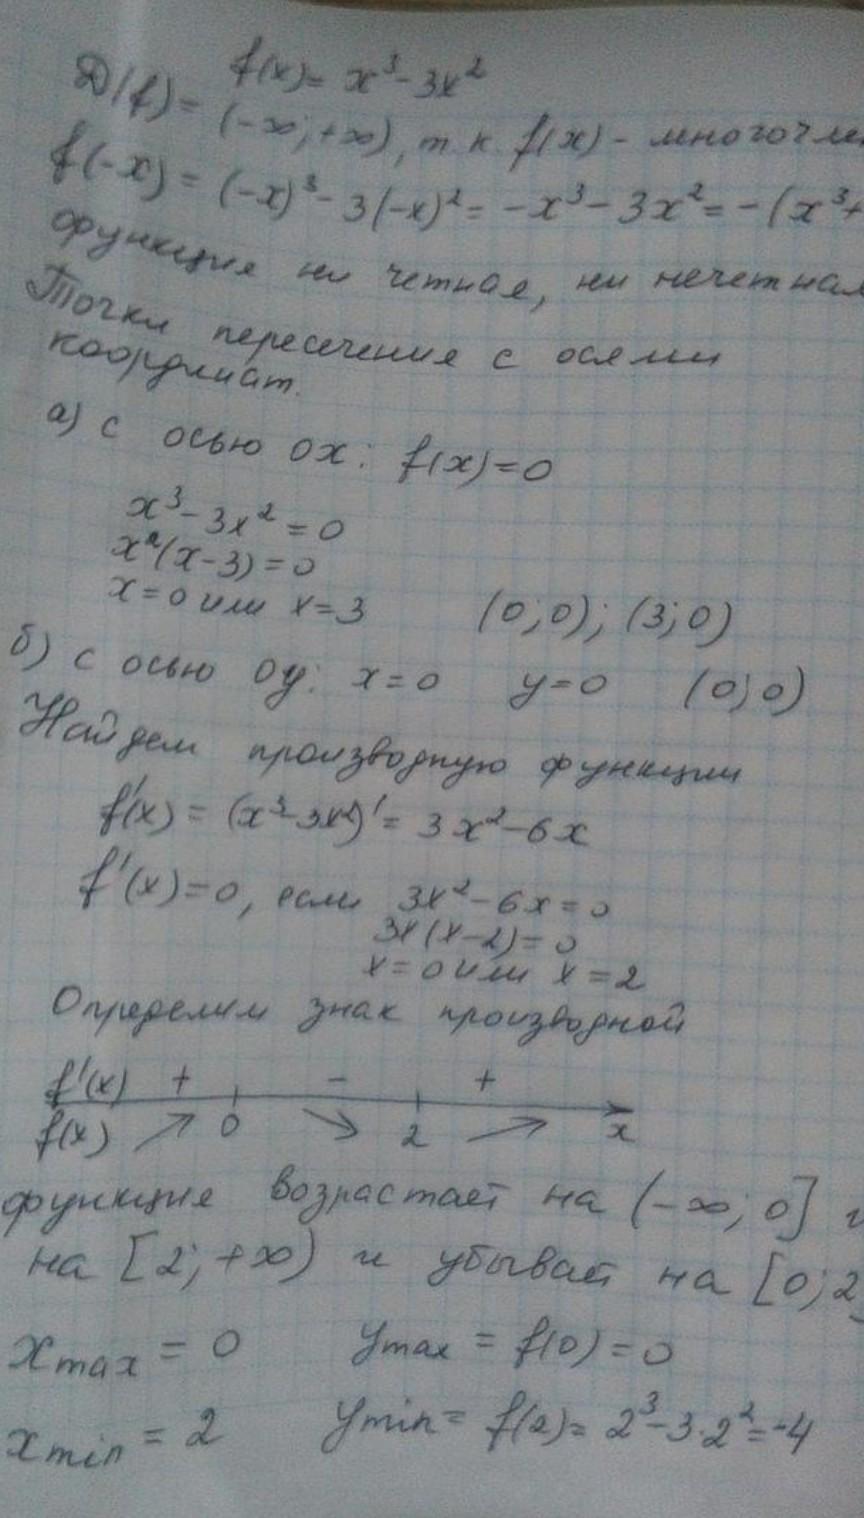 f(x) = x³ - 3x²
D(f) = (-∞; +∞), т. к. f(x) - многочле
f(-x) = (-x)³ - 3(-x)² = -x³ - 3x² = -(x³+
функция ни четная, ни нечетная
Точки пересечения с осями
координат.
а) с осью ox: f(x)=0
x³ - 3x² = 0
x²(x-3) = 0
x=0 или x=3 (0;0); (3;0)
б) с осью oy: x=0 y=0 (0;0)
Найдем производную функции
f'(x) = (x³-3x²)' = 3x²-6x
f'(x)=0, если 3x²-6x=0
3x(x-2)=0
x=0 или x=2
Определим знак производной
f'(x) + - +
f(x) ↗ 0 ↘ 2 ↗ x
функция возрастает на (-∞; 0] и
на [2; +∞) и убывает на [0; 2]
xmax = 0 ymax = f(0) = 0
xmin = 2 ymin = f(2) = 2³-3·2²=-4